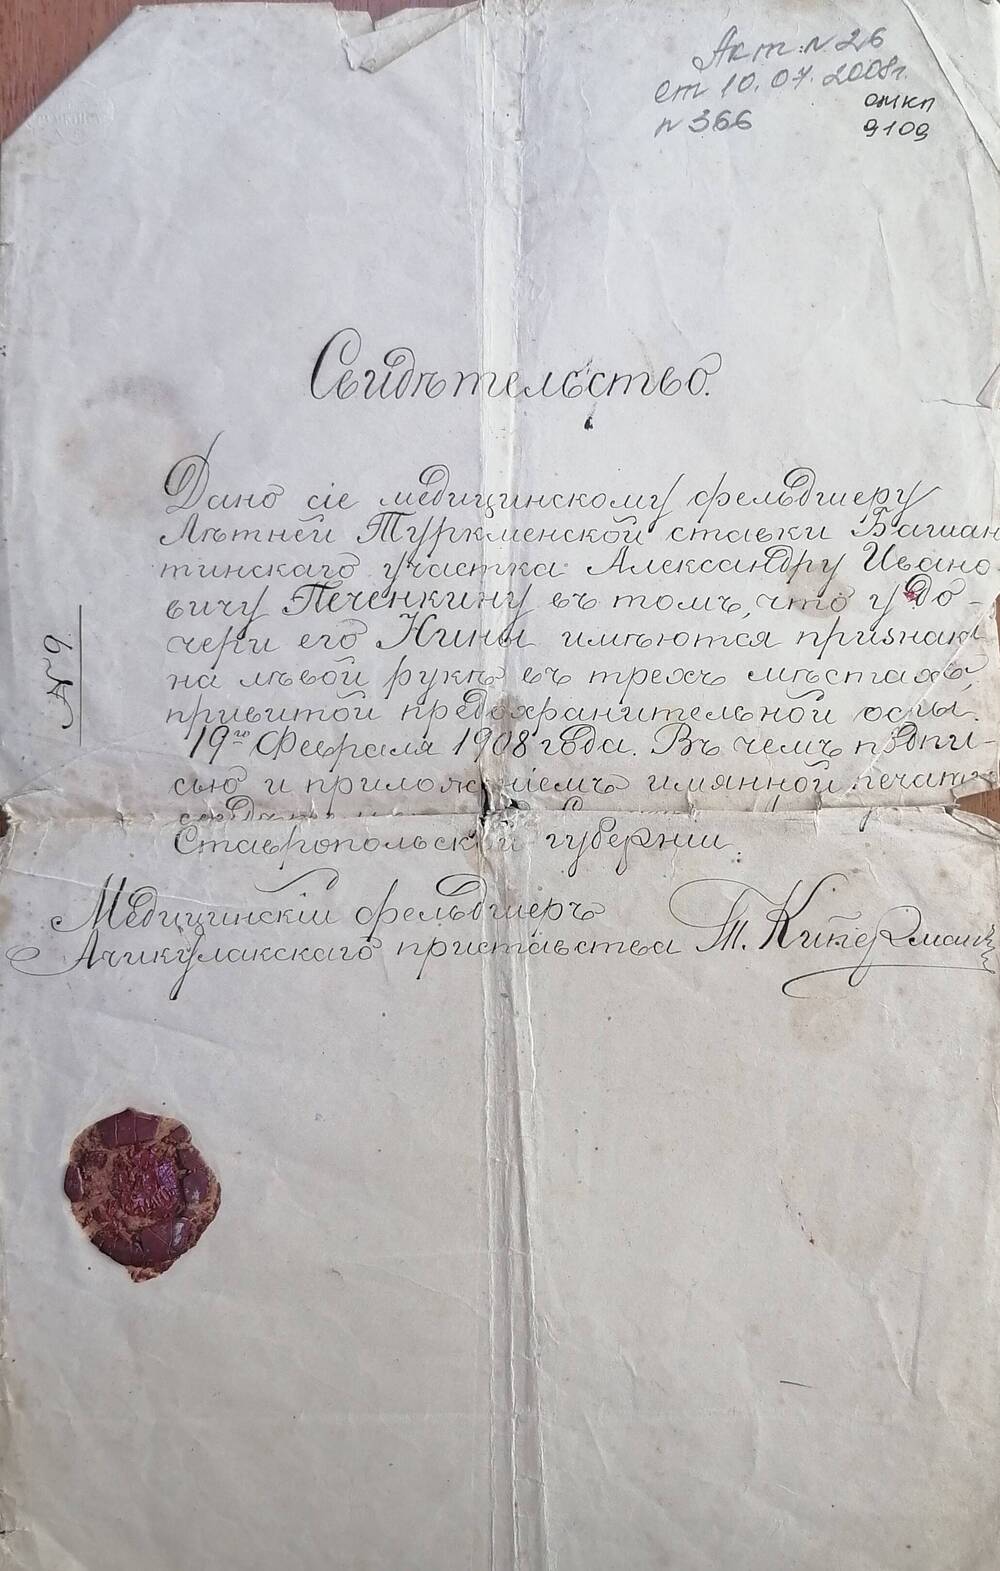 Акт. № 26
от 10.07.2008г.
№ 366
омкп
9109
Свидѣтельство.
Дано сіе медицинскому фельдшеру
Лѣтней Туркменской ставки Башан
тинскаго участка Александру Ивано
вичу Печенкину въ томъ, что у до-
чери его Нины имѣются признаки
на лѣвой рукѣ въ трехъ мѣстахъ,
привитой предохранительной оспы.
19го Февраля 1908 года. Въ чемъ подпи-
сью и приложеніемъ имянной печати
Ставропольской губерніи.
№ 9
Медицинскій фельдшеръ
Ачикулакскаго приставства Т. Киперман